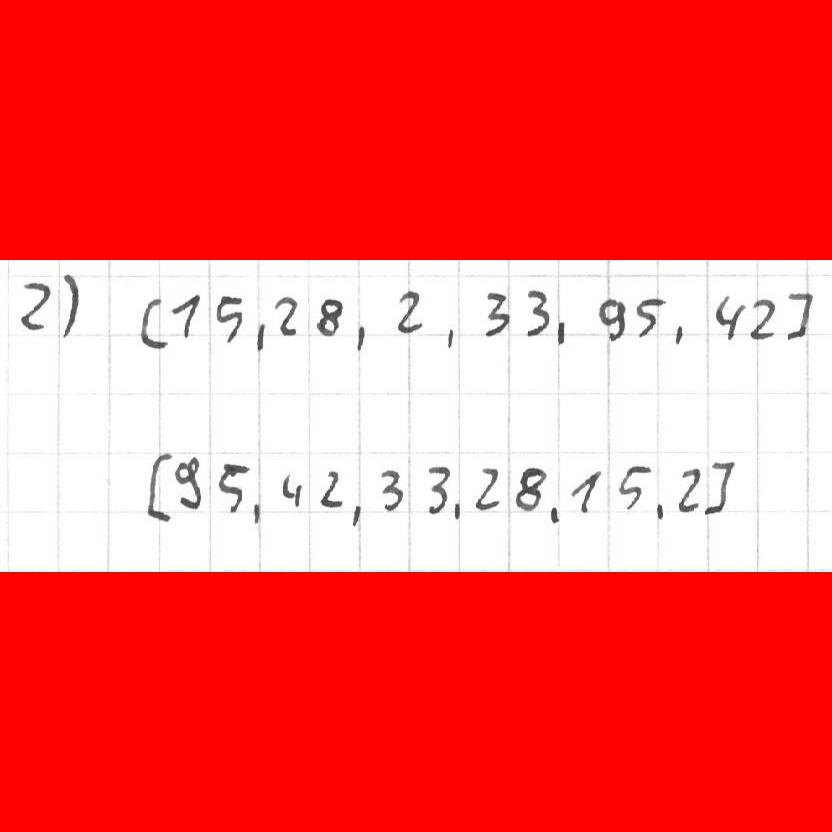 2) [15,28, 2, 33, 95, 42]
[95,42,33,28,15,2]